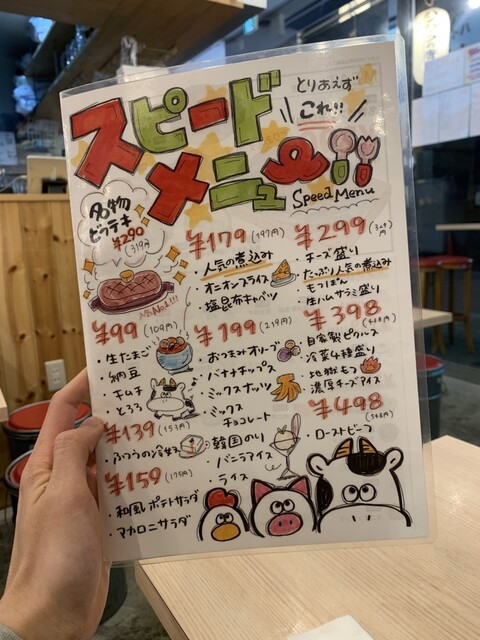 スピード
メニュー!!
とりあえず
これ!!
Speed Menu
名物
ビフテキ
¥290
(319円)
人気No.1!!!
¥99(109円)
・生たまご
・納豆
・キムチ
・とろろ
¥139(153円)
・ふつうの冷奴
¥159(175円)
・和風ポテトサラダ
・マカロニサラダ
¥179(197円)
・人気の煮込み
・オニオンスライス
・塩昆布キャベツ
¥199(219円)
・おつまみオリーブ
・バナナチップス
・ミックスナッツ
・ミックス
チョコレート
・韓国のり
・バニラアイス
・ライス
¥299(329円)
・チーズ盛り
・たっぷり人気の煮込み
・もつぽん
・生ハムサラミ盛り
¥398(438円)
・自家製ピクルス
・冷菜4種盛り
・地獄もつ
・濃厚チーズアイス
¥498(548円)
・ローストビーフ